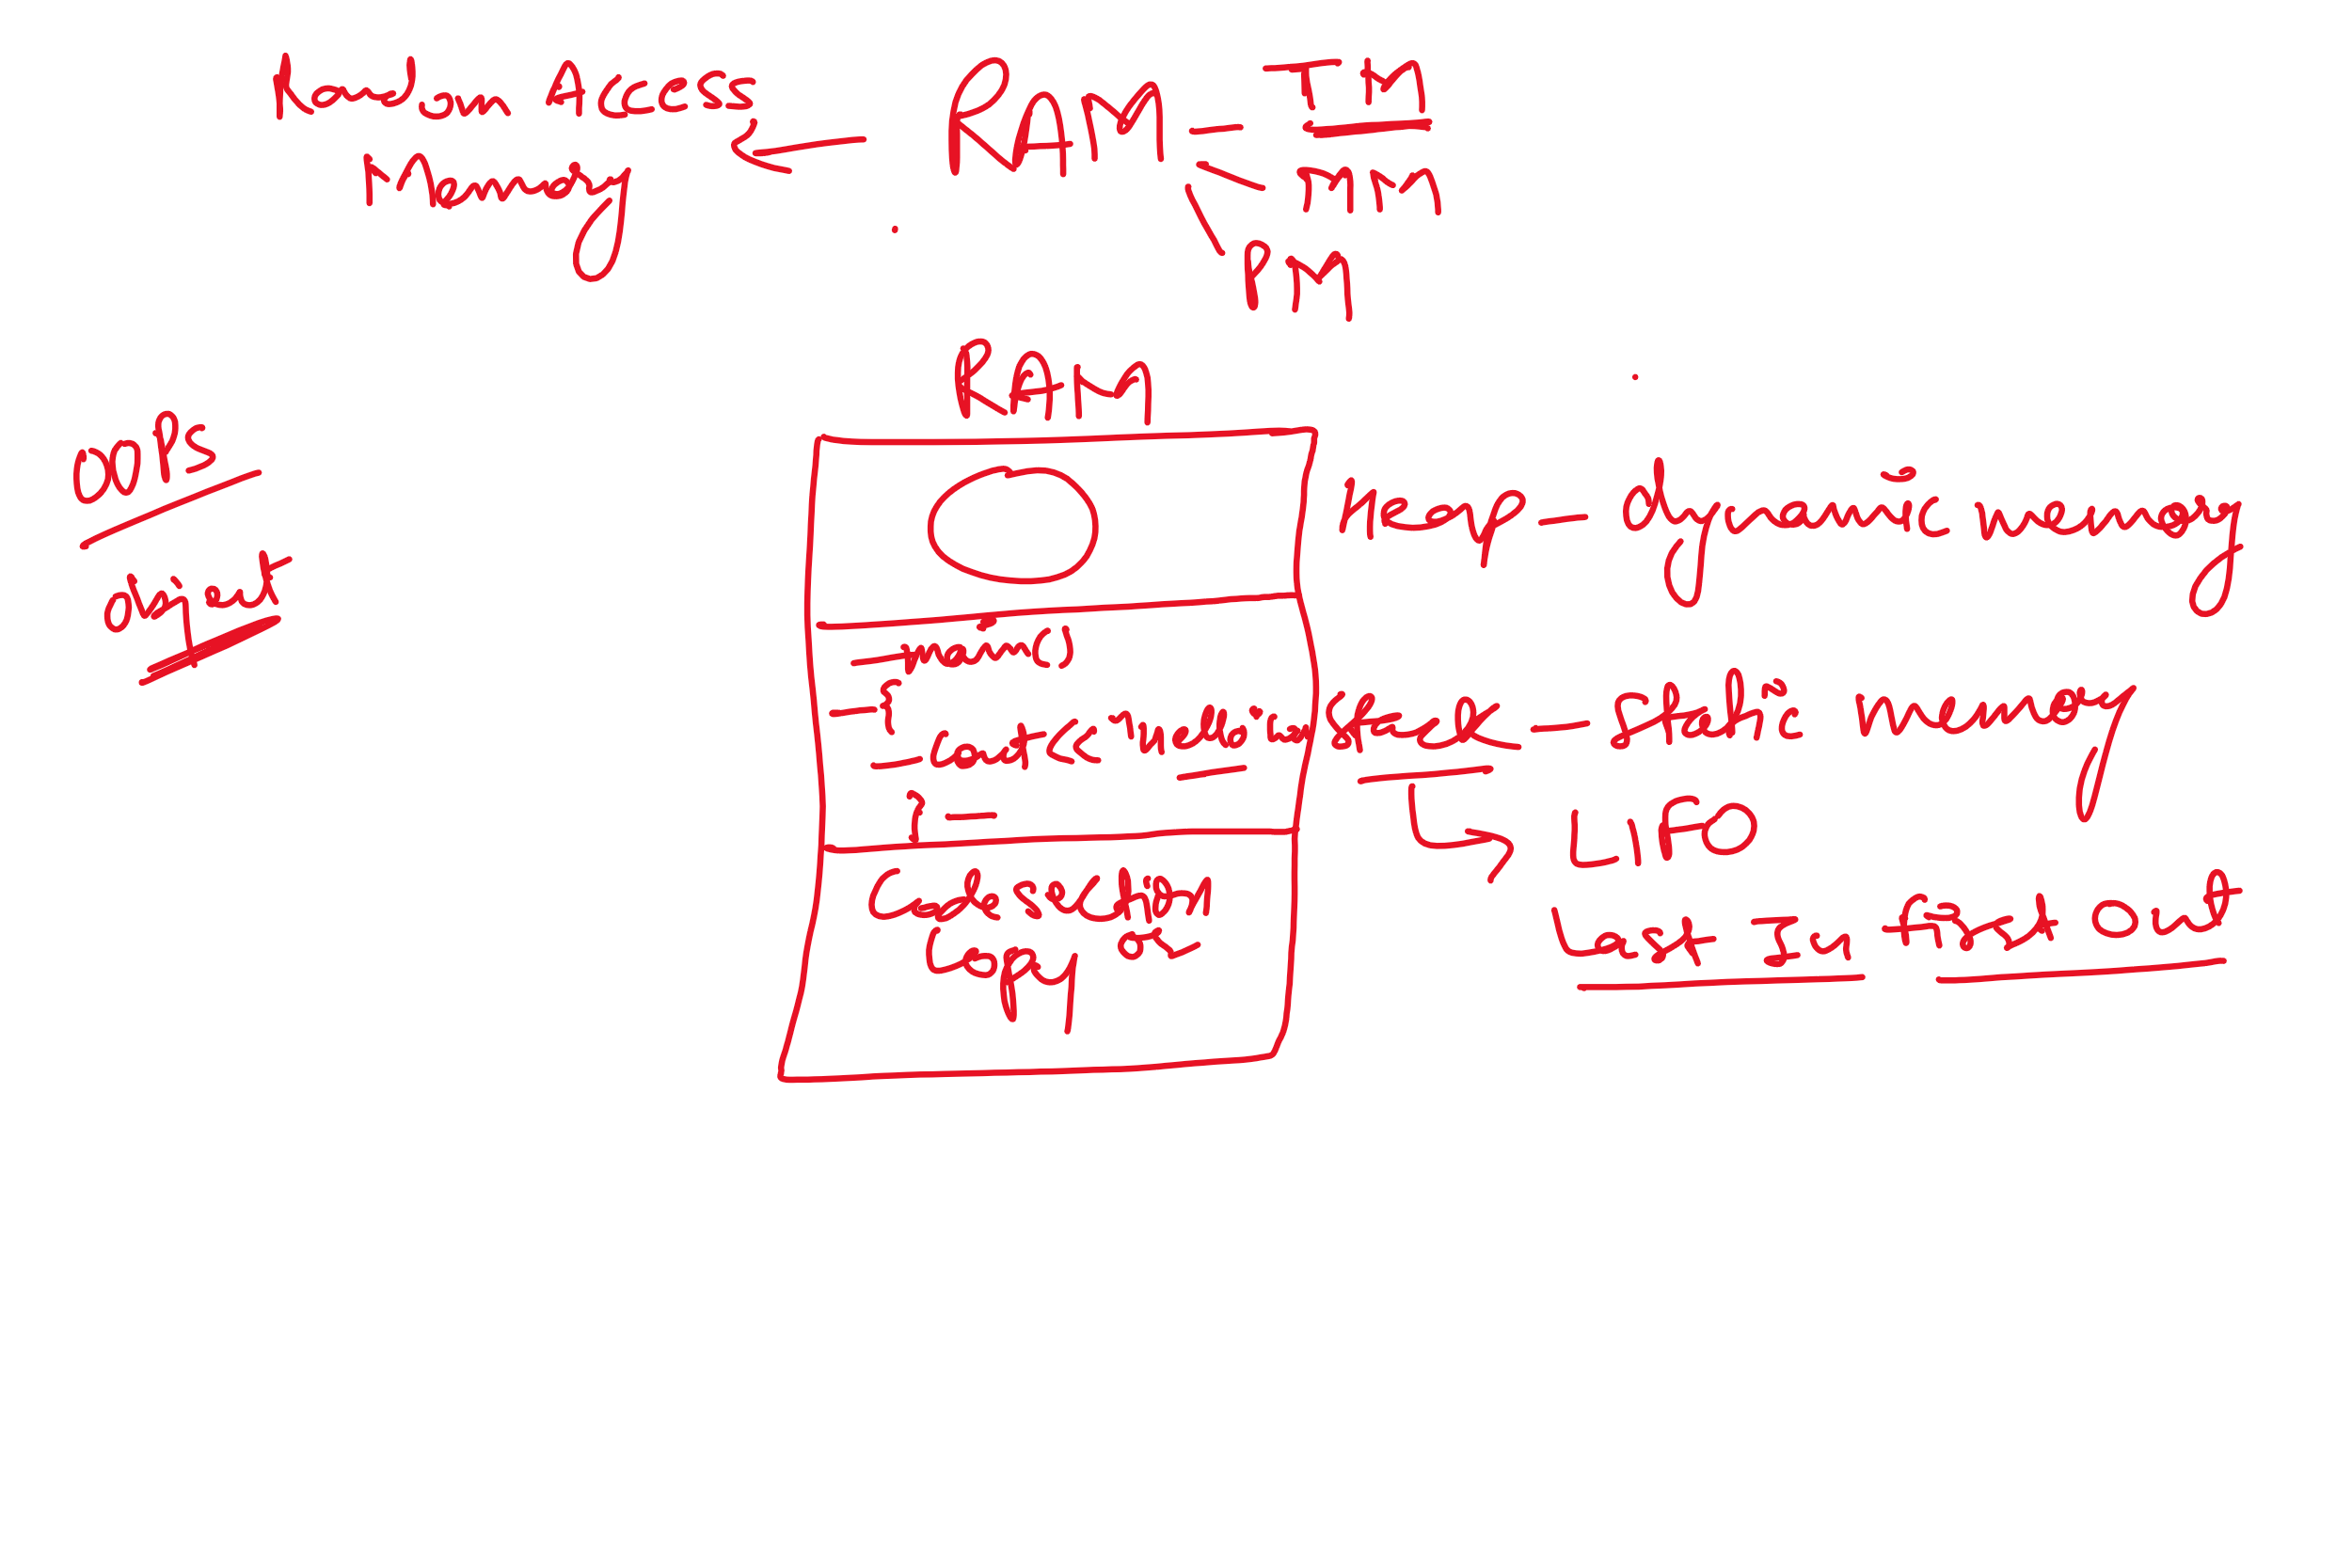 Random Access
Memory
RAM - TM
MM
PM
RAM
OOPs
object
Heap - dynamic memory
main()
{
cout<<"Hello";
}
Stack - Static memory
LIFO
Last In First Out
Code section
Copy